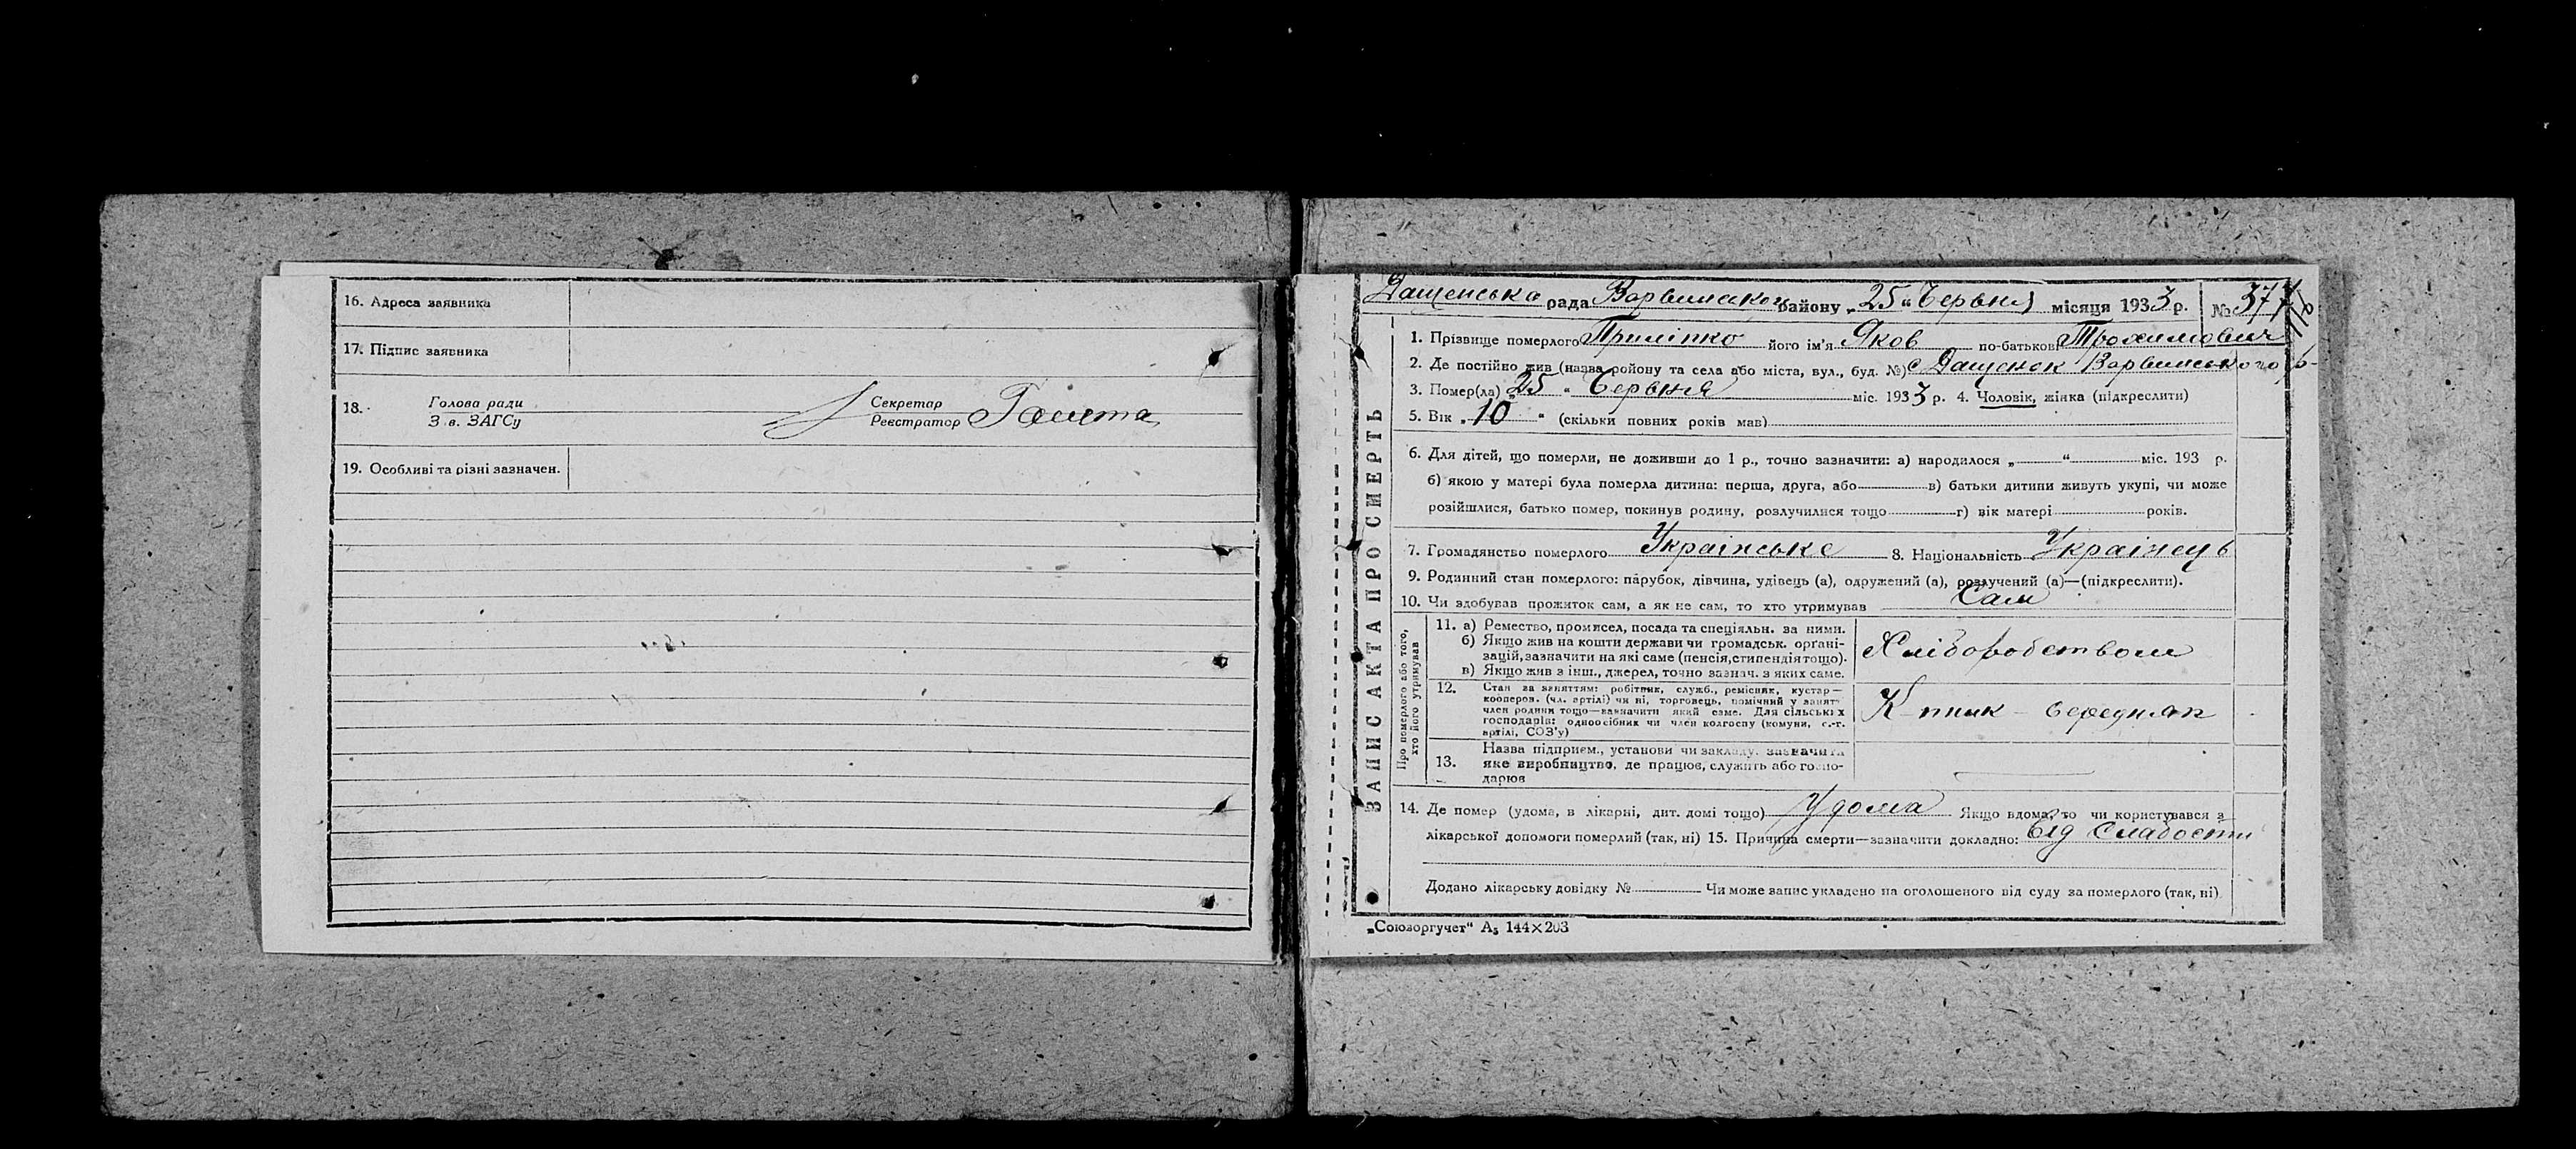 16. Адреса заявника
17. Підпис заявника
18. Голова ради Секретар
З в. ЗАГСу Реєстратор
19. Особливі та різні зазначен.
Дащенська рада Варвинськ району „25“ Червня місяця 1933 р. № 377
ЗАПИС АКТА ПРО СМЕРТЬ
1. Прізвище померлого Приліпко його ім'я Яков по-батькові Трохимович
2. Де постійно жив (назва району та села або міста, вул., буд. №) с Дащенок Варвинського р-
3. Помер(ла) „25“ Червня міс. 1933 р. 4. Чоловік, жінка (підкреслити)
5. Вік „10“ (скільки повних років мав)
6. Для дітей, що померли, не доживши до 1 р., точно зазначити: а) народилося „ “ міс. 193 р.
б) якою у матері була померла дитина: перша, друга, або в) батьки дитини живуть укупі, чи може
розійшлися, батько помер, покинув родину, розлучилися тощо г) вік матері років.
7. Громадянство померлого Українське 8. Національність Українець
9. Родинний стан померлого: парубок, дівчина, удівець (а), одружений (а), розлучений (а)—(підкреслити).
10. Чи здобував прожиток сам, а як не сам, то хто утримував Сам
Про померлого або того,
хто його утримував
11. а) Ремество, промисел, посада та спеціяльн. за ними.
б) Якщо жив на кошти держави чи громадськ. організацій, зазначити на які саме (пенсія, стипендія тощо).
в) Якщо жив з інш., джерел, точно зазнач. з яких саме.
Хліборобством
12. Стан за заняттям: робітник, служб., ремісник, кустар—
кооперов. (чл. артілі) чи ні, торговець, помічний у занят
член родини тощо—зазначити який саме. Для сільських
господарів: одноосібник чи член колгоспу (комуни, с.-г.
артілі, СОЗ'у)
К-пник - середняк
13. Назва підприєм., установи чи закладу. зазначити
яке виробництво, де працює, служить або госпо-
дарює
14. Де помер (удома, в лікарні, дит. домі тощо) Удома Якщо вдома, то чи користувався з
лікарської допомоги померлий (так, ні) 15. Причина смерти—зазначити докладно: Від Слабости
Додано лікарську довідку № Чи може запис укладено на оголошеного від суду за померлого (так, ні)
„Союзоргучет“ А₅ 144×203